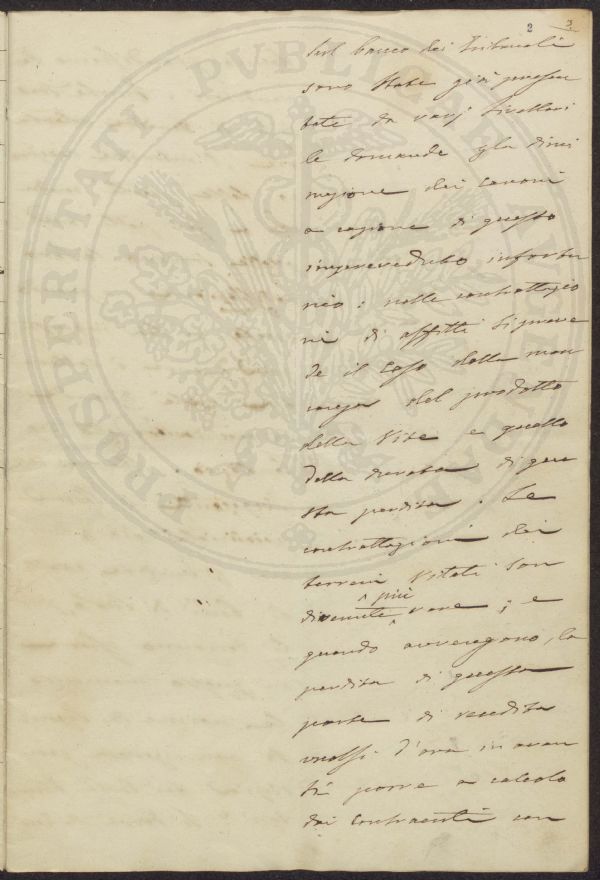 2 3
Sul banco dei Tribunali
sono state già presen
tate da varj livellari
le domande p la dimi
nuzione dei canoni
a cagione di questo
impreveduto infortu
nio; nelle contrattazio
ni di affitti si preve
de il caso della man
canza del prodotto
della Vite e quello
della durata di que
sta perdita. Le
contrattazioni dei
terreni vitati son
divenute più rare; e
quando avvengono, la
perdita di questa
parte di rendita
vuolsi d'ora in avan
ti porre a calcolo
dai contraenti con
PROSPERITATI PUBLICAE AUGENDAE